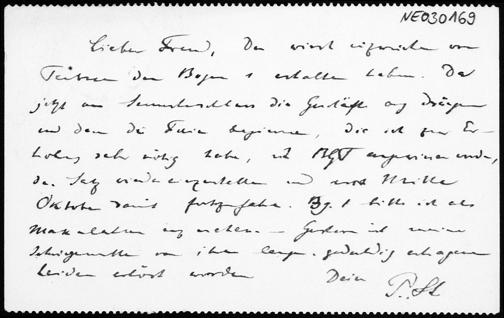 NE030169
Lieber Freund, Du wirst inzwischen von
den Bogen 1 erhalten haben. Da
jetzt am Semesterschluss die Geschäfte arg drängen
und dann die Ferien beginnen, die ich zur Er-
holung sehr nötig habe, ist BGT angewiesen worden,
den Satz wiedereinzustellen und erst Mitte
Oktober damit fortzufahren. Bg. 1 bitte ich als
Makulatur anzusehen. – Gestern ist meine
Schwiegermutter von ihren langen, geduldig ertragenen
Leiden erlöst worden Dein
P. St